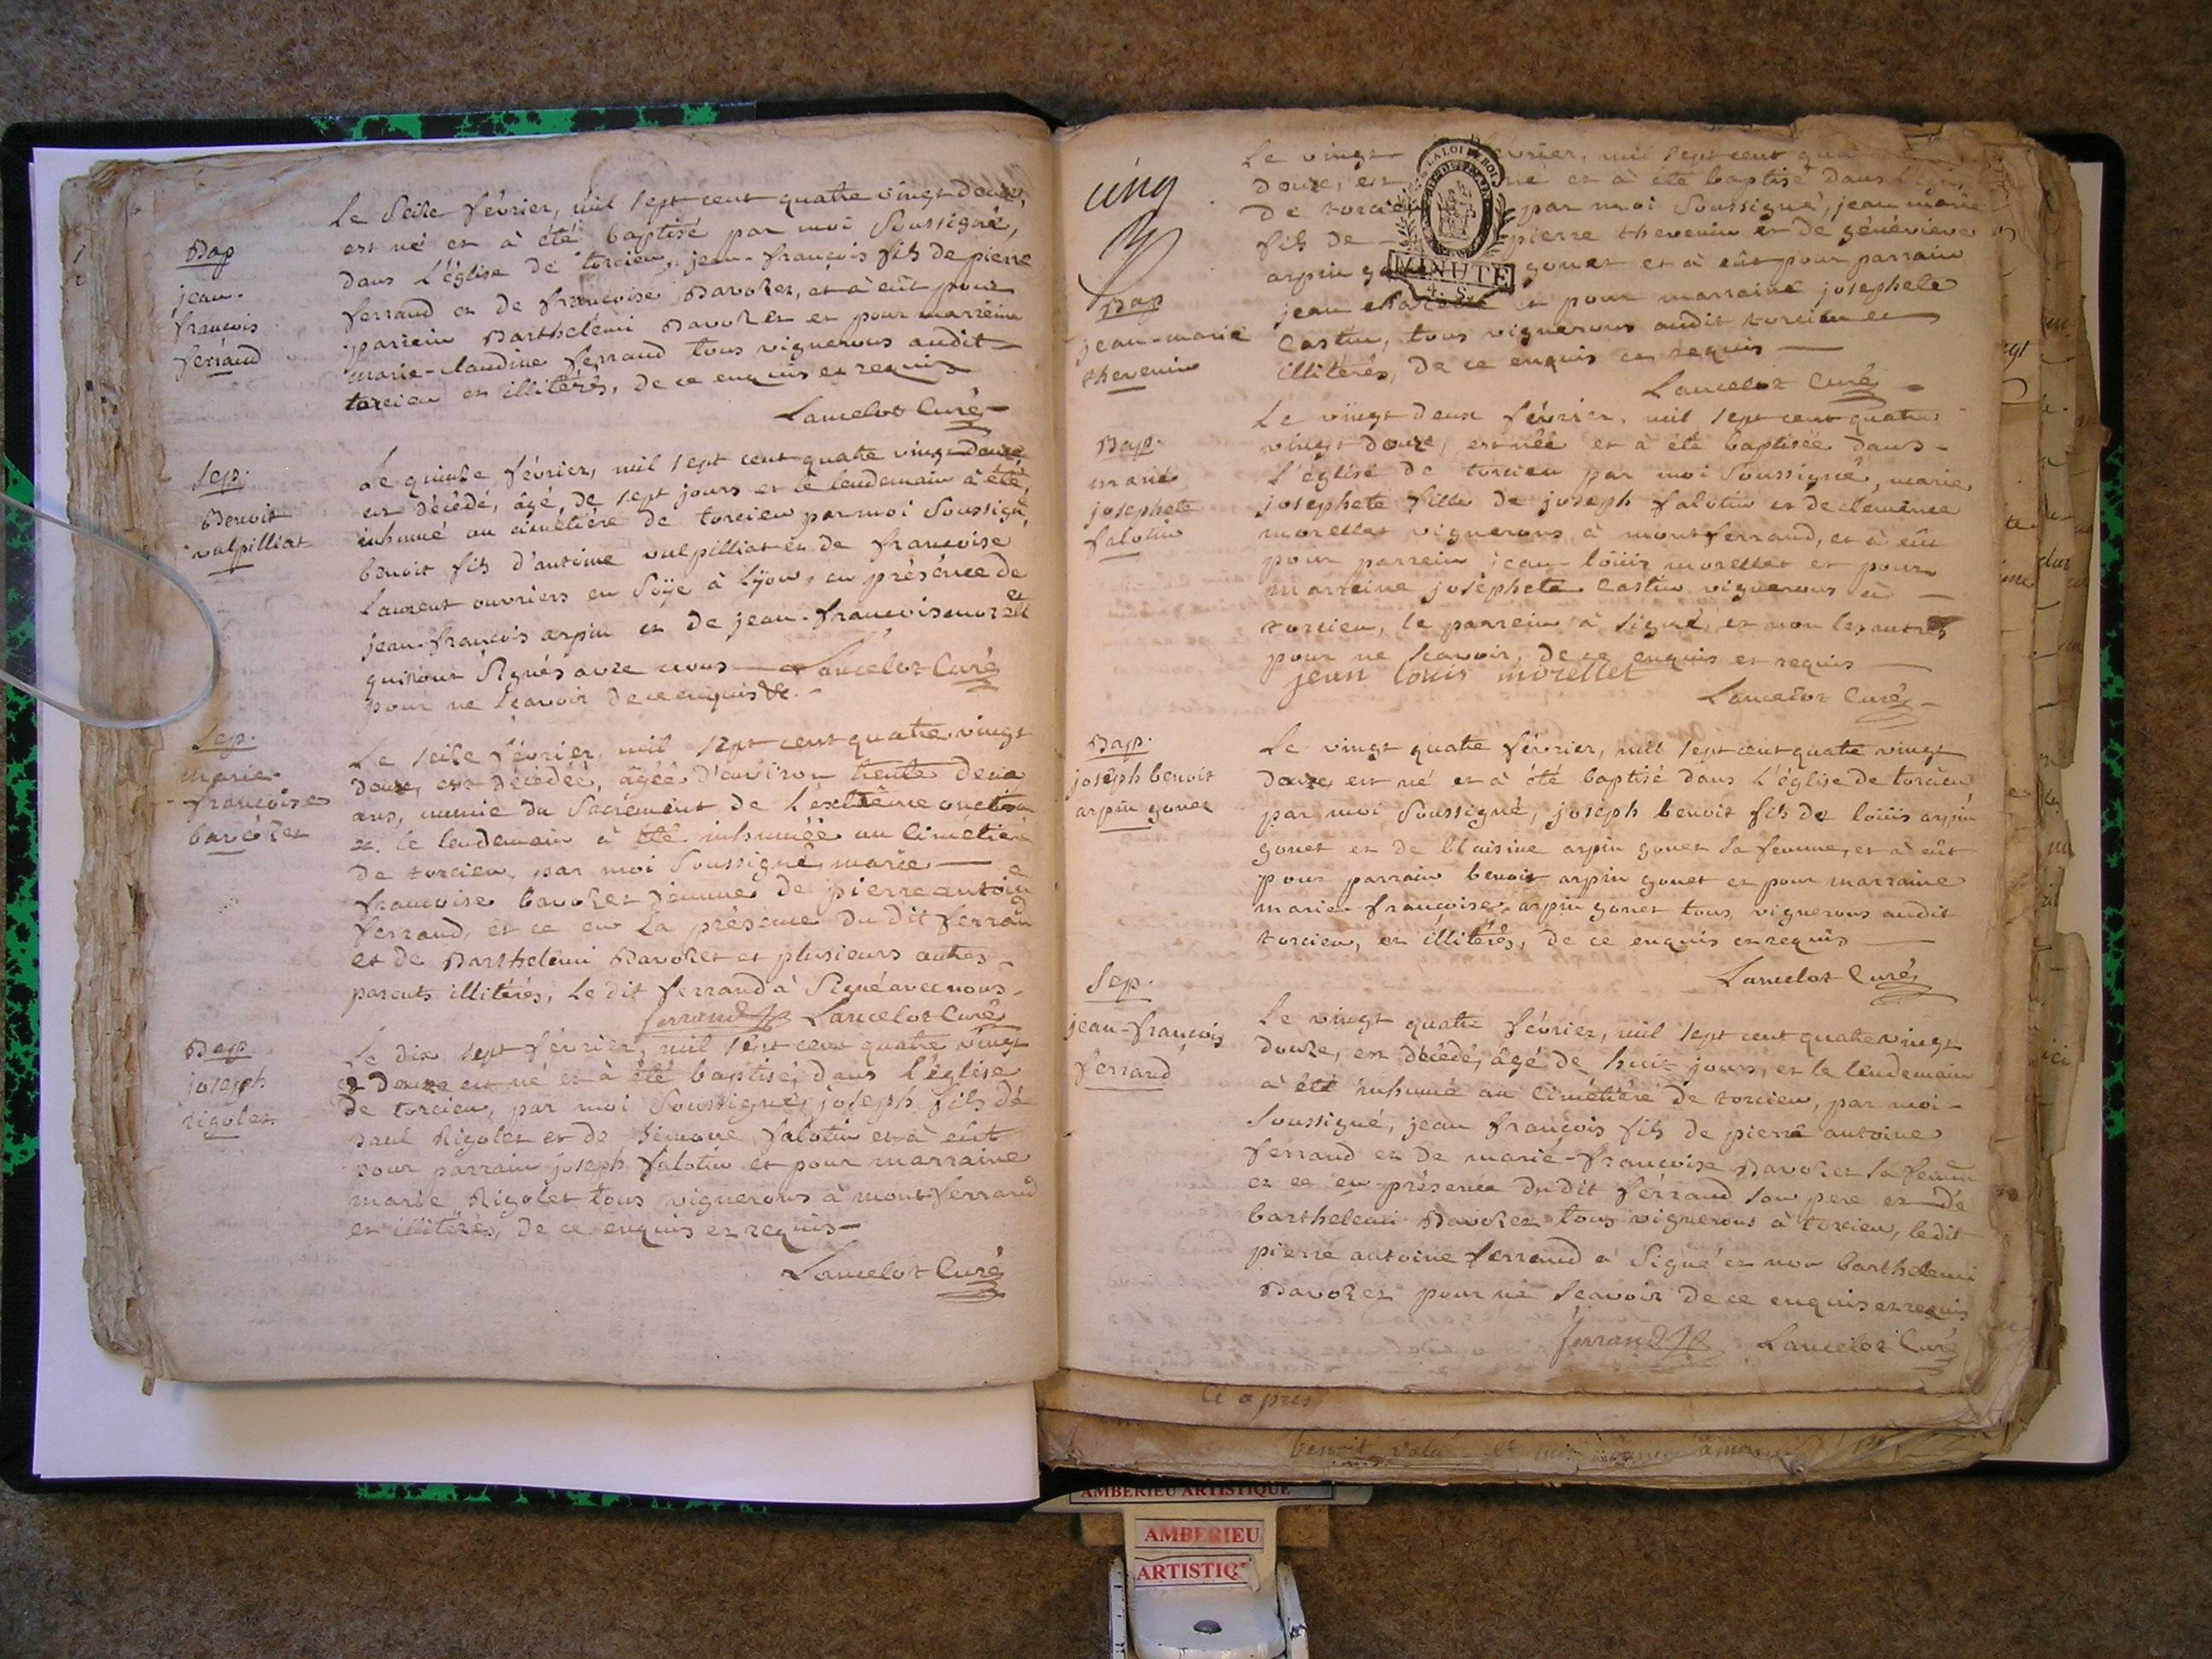 Bap
jean-
françois
ferrand
Le Seize février, mil sept cent quatre vingt douze,
est né et à été baptisé par moi Soussigné,
dans l'église de torcieu, jean-françois fils de pierre
ferrand et de françoise Bavozet, et à eût pour
parrein Barthelemi Bavozet et pour marreine
marie-claudine ferrand tous vignerons audit
torcieu et illitérés, de ce enquis et requis
Lancelot Curé
Sep.
Benoit
vulpilliat
Le quinze février, mil sept cent quatre vingt douze
est décédé, âgé, de sept jours et le lendemain à été
inhumé au cimetière de torcieu par moi Soussigné,
benoit fils d'antoine vulpilliat et de françoise
Laurent ouvriers en Söÿe à Lÿon, en présence de
jean-françois arpin et de jean-françois morellet
qui n'ont Signés avec nous Lancelot Curé
pour ne sçavoir de ce enquis &c.
Sep.
marie-
françoise
bavozet
Le seize février, mil sept cent quatre vingt
douze, est décédée, âgée d'environ trente deux
ans, munie du Sacrement de l'extrême onction
&. le lendemain à été inhumée au cimetière
de torcieu, par moi Soussigné marie
françoise bavozet femme de pierre antoine
ferrand, et ce en la présence du dit ferrand
et de Barthelemi Bavozet et plusieurs autres
parents illitérés, le dit ferrand à Signé avec nous
ferrand Lancelot Curé
Bap
joseph
rigolet
Le dix sept février, mil sept cent quatre vingt
douze est né et à été baptisé, dans l'église
de torcieu, par moi Soussigné, joseph fils de
paul Rigolet et de Simone falotin et à eût
pour parrain joseph falotin et pour marraine
marie Rigolet tous vignerons à montferrand
et illitérés, de ce enquis et requis
Lancelot Curé
cinq
LA LOI LE ROI
MINUTE
4. S.
Bap
jean-marie
thevenin
Le vingt février, mil sept cent
douze, est né et à été baptisé dans
de torcieu par moi Soussigné, jean marie
fils de pierre thevenin et de géneviève
arpin gouet et à eût pour parrain
jean et pour marraine josephete
Castin, tous vignerons audit torcieu et
illitérés, de ce enquis et requis
Lancelot Curé
Bap.
marie
josephete
falotin
Le vingt deux février, mil sept cent quatre
vingt douze, est née et à été baptisée dans
l'église de torcieu par moi Soussigné, marie
josephete fille de joseph falotin et de clémence
morellet vignerons à montferrand, et à eût
pour parrein jean-löüis morellet et pour
marreine josephete Castin vignerons à
torcieu, le parrein à Signé, et non les autres
pour ne scavoir, de ce enquis et requis
jean louis morellet
Lancelot Curé
Bap.
joseph benoit
arpin gouet
Le vingt quatre février, mil sept cent quatre vingt
douze est né et à été baptisé dans l'église de torcieu
par moi Soussigné, joseph benoit fils de löüis arpin
gouet et de blaisine arpin gouet sa femme, et à eût
pour parrain benoit arpin gouet et pour marraine
marie-françoise arpin gouet tous vignerons audit
torcieu, et illitérés, de ce enquis et requis
Lancelot Curé
Sep.
jean-françois
ferrand
Le vingt quatre février, mil sept cent quatre vingt
douze, est décédé, âgé de huit jours, et le lendemain
à été inhumé au Cimétière de torcieu, par moi
Soussigné, jean françois fils de pierre antoine
ferrand et de marie-françoise Bavozet sa femme
et ce en présence du dit ferrand son pere et de
barthelemi Bavozet tous vignerons à torcieu, ledit
pierre antoine ferrand à Signé et non barthelemi
Bavozet pour ne scavoir de ce enquis et requis
ferrand Lancelot Curé
Ci apres
benoit
AMBERIEU ARTISTIQUE
AMBERIEU
ARTISTIQ